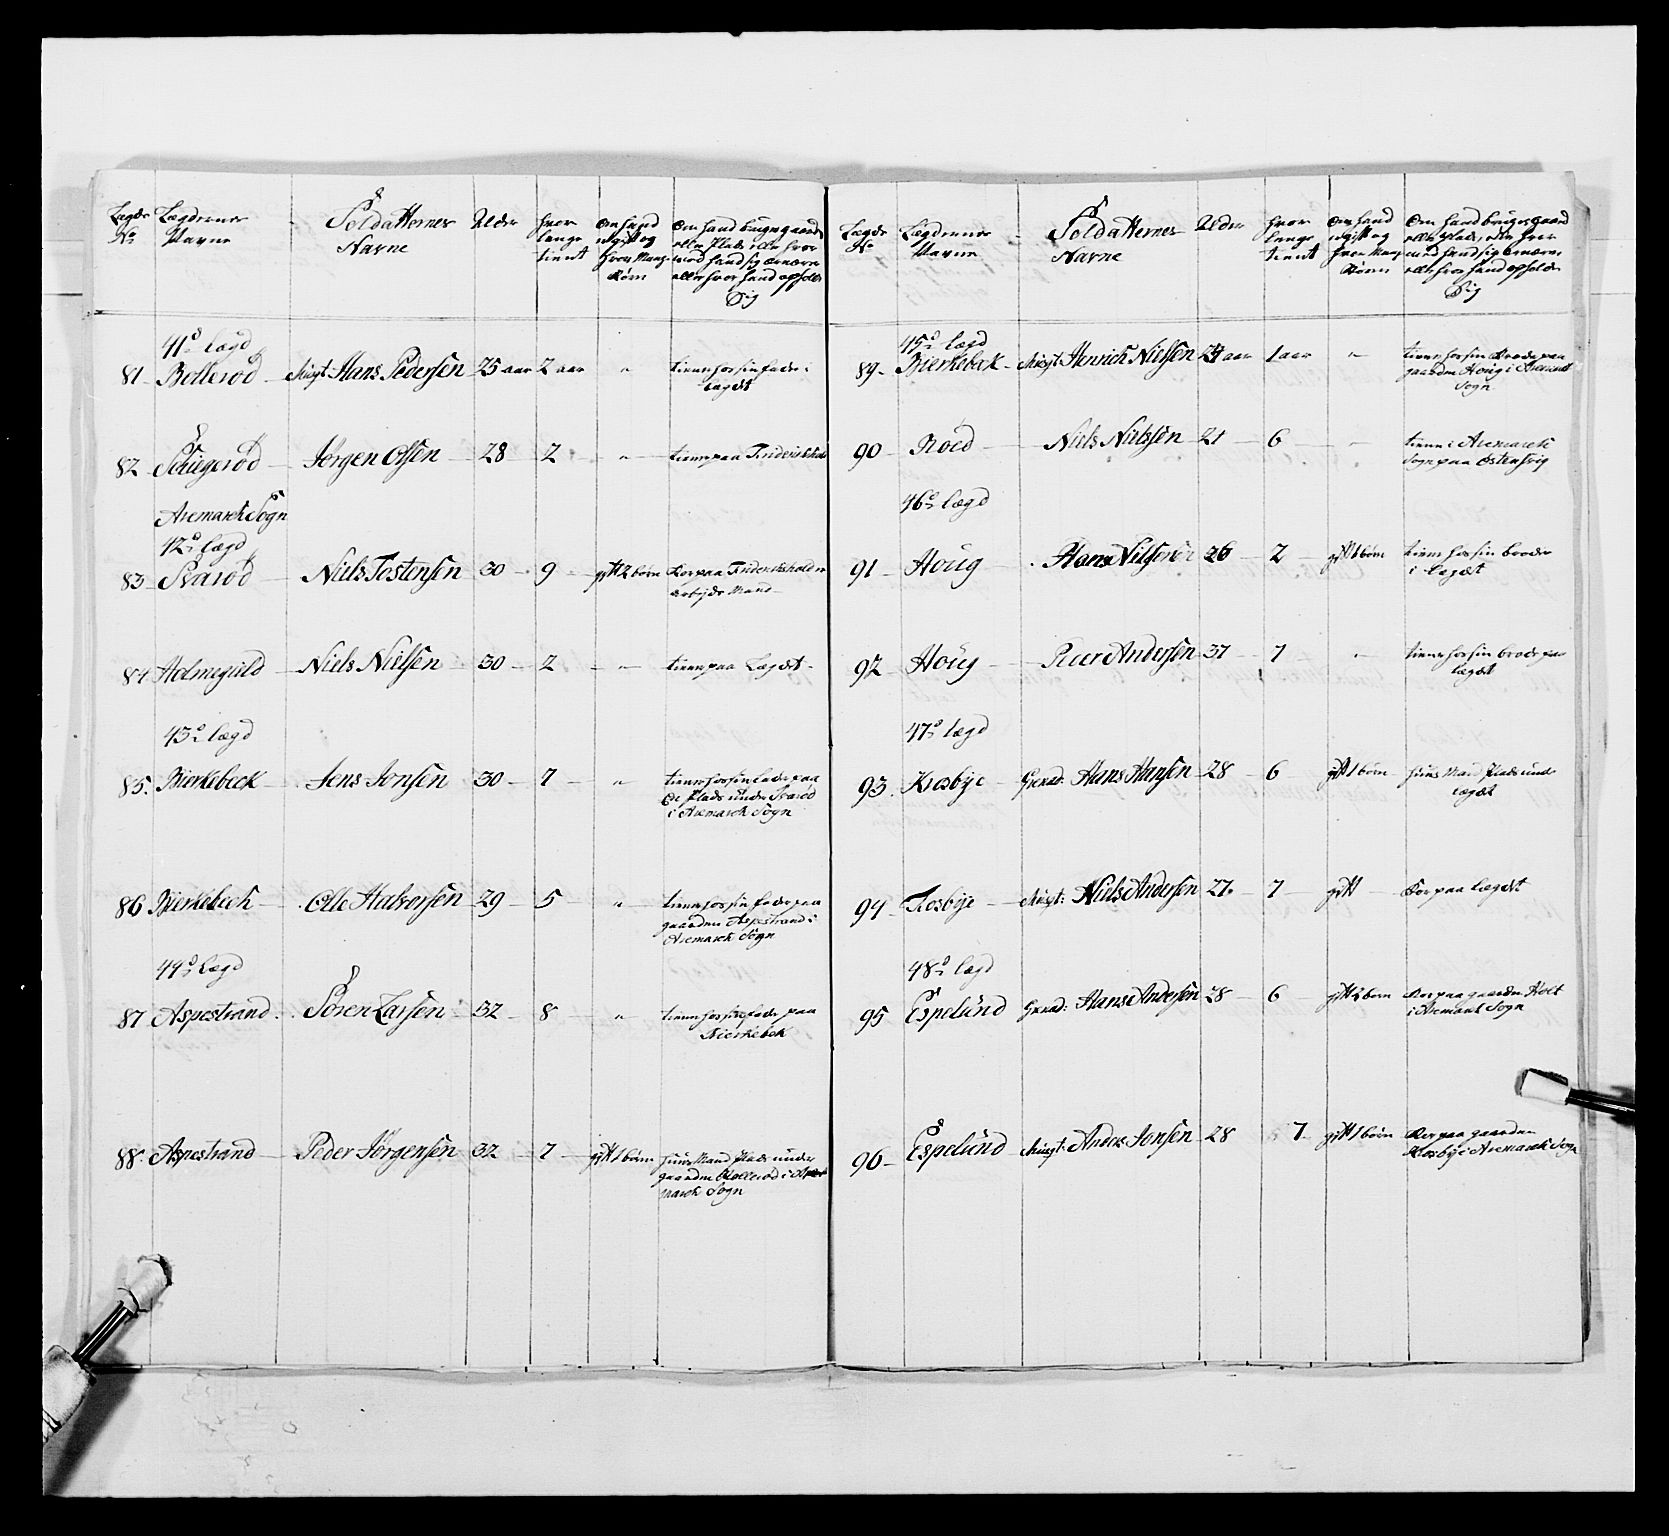 Lægds No
Lægdernes Navne
Soldatternes Navne
Alder
hvor lenge tient
om hand er gift og hvor Mang Børn
Om hand bruger gaard eller Plads, eller hvor med hand sig ernærer eller hvor hand opholder Sig
41de Lægd
81 Bollerød Musqt: Hans Pedersen 25 aar 2 aar " tiener hos sin fader i Lægdet
82 Jørgen Olsen 28 2 " tiener paa Friderichshald
Aremarch Sogn
42de Lægd
83 Svarød Niels Tostensen 30 9 gift 2 børn Boer paa Friderichshald er arbejds Mand
84 Holmegield Niels Nielsen 30 2 " tiener paa Lægdet
43de Lægd
85. Bierkebeck Jens Jonsen 30 7 " tiener hos sin fader paa Et Plads under Svarød i Aremarch Sogn
86 Bierkebech Olle Halvorsen 29 5 " tiener hos sin fader paa gaarden Aspestrand i Aremarch Sogn
44de Lægd
87 Aspestrand Søren Larsen 32 8 " tiener hos sin fader paa Bierkebek
88. Aspestrand Peder Jørgensen 32 7 gift 1 børn huus Mand Plads under gaarden Bollerød i Aremarch Sogn
Lægds No
Lægdernes Navne
Soldatternes Navne
Alder
hvor lenge tient
om hand er gift og hvor Mang Børn
Om hand bruger gaard eller Plads, eller hvor med hand sig ernærer eller hvor hand opholder Sig
45de Lægd
89 Bierkebek Musqt: Henrich Nielsen aar 1 aar " tiener hos sin Broder paa gaarden Houg i Aremark Sogn
90 Roed Niels Nielssen 21 6 " tiener i Aremarck Sogn paa Østensvig
46de Lægd
91 Houg Hans Nilssen 26 2 gift 1 børn tiener hos sin broder i Lægdet
92 Houg Andersen 37 7 " tiener hos sin broder paa Lægdet
47de Lægd
93. Krosbye Grenad: Hans Hansen 28 6 gift 1 børn huus Mand Plads under Lægdet
94 Krosbye Musqt: Niels Andersen 27. 7 gift Boer paa Lægdet
48de Lægd
95 Espelund Grenad: Hans Andersen 28 6 gift 2 børn Boer paa gaarden Holt i Aremark Sogn
96 Espelund Musqt: Anders Jonsen 28 7 gift 1 børn Boer paa gaarden Krosby i Aremark Sogn